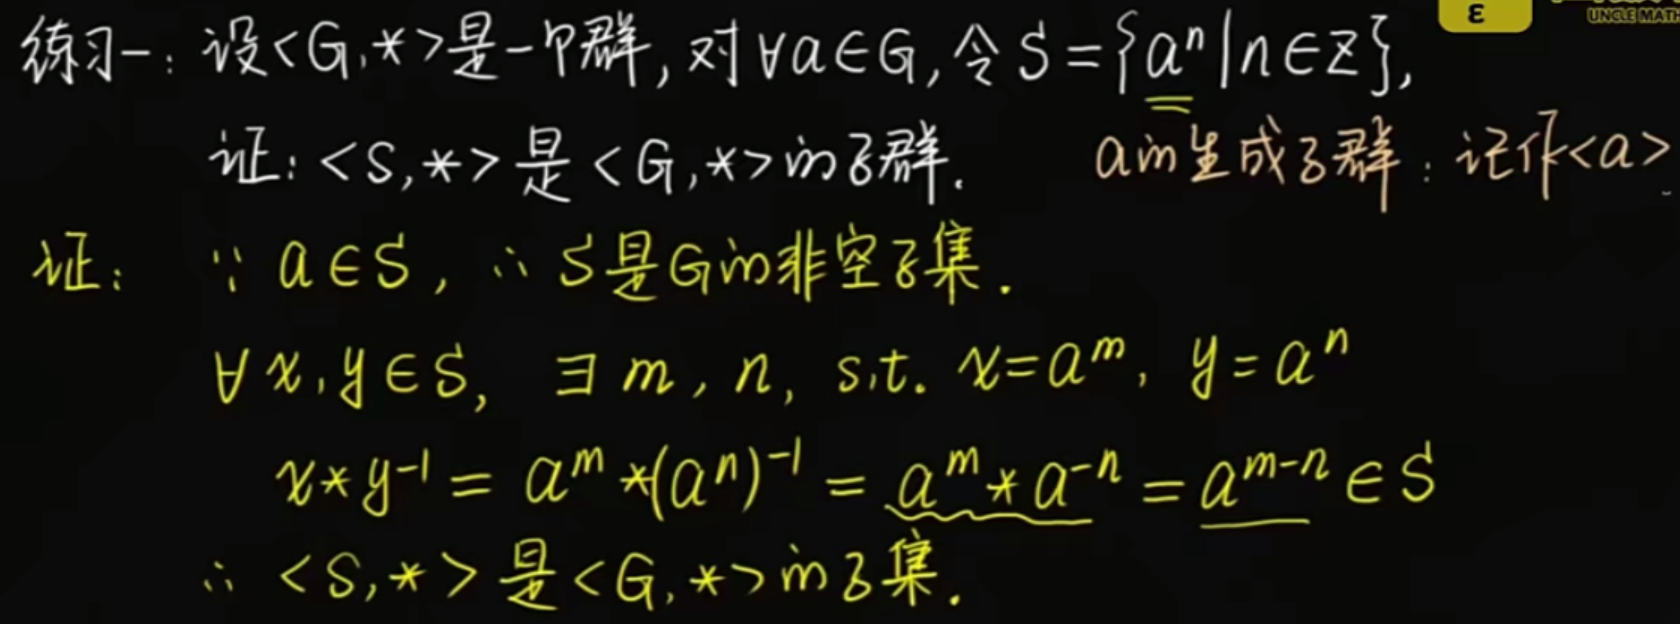 ε
UNCLE MATH
练习一：设<G,*>是一个群，对∀a∈G，令S={aⁿ|n∈Z}，
证：<S,*>是<G,*>的子群． a的生成子群：记作<a>
证： ∵ a∈S，∴ S是G的非空子集．
∀x,y∈S, ∃m,n, s.t. x=aᵐ, y=aⁿ
x*y⁻¹=aᵐ*(aⁿ)⁻¹=aᵐ*a⁻ⁿ=aᵐ⁻ⁿ∈S
∴ <S,*>是<G,*>的子集．